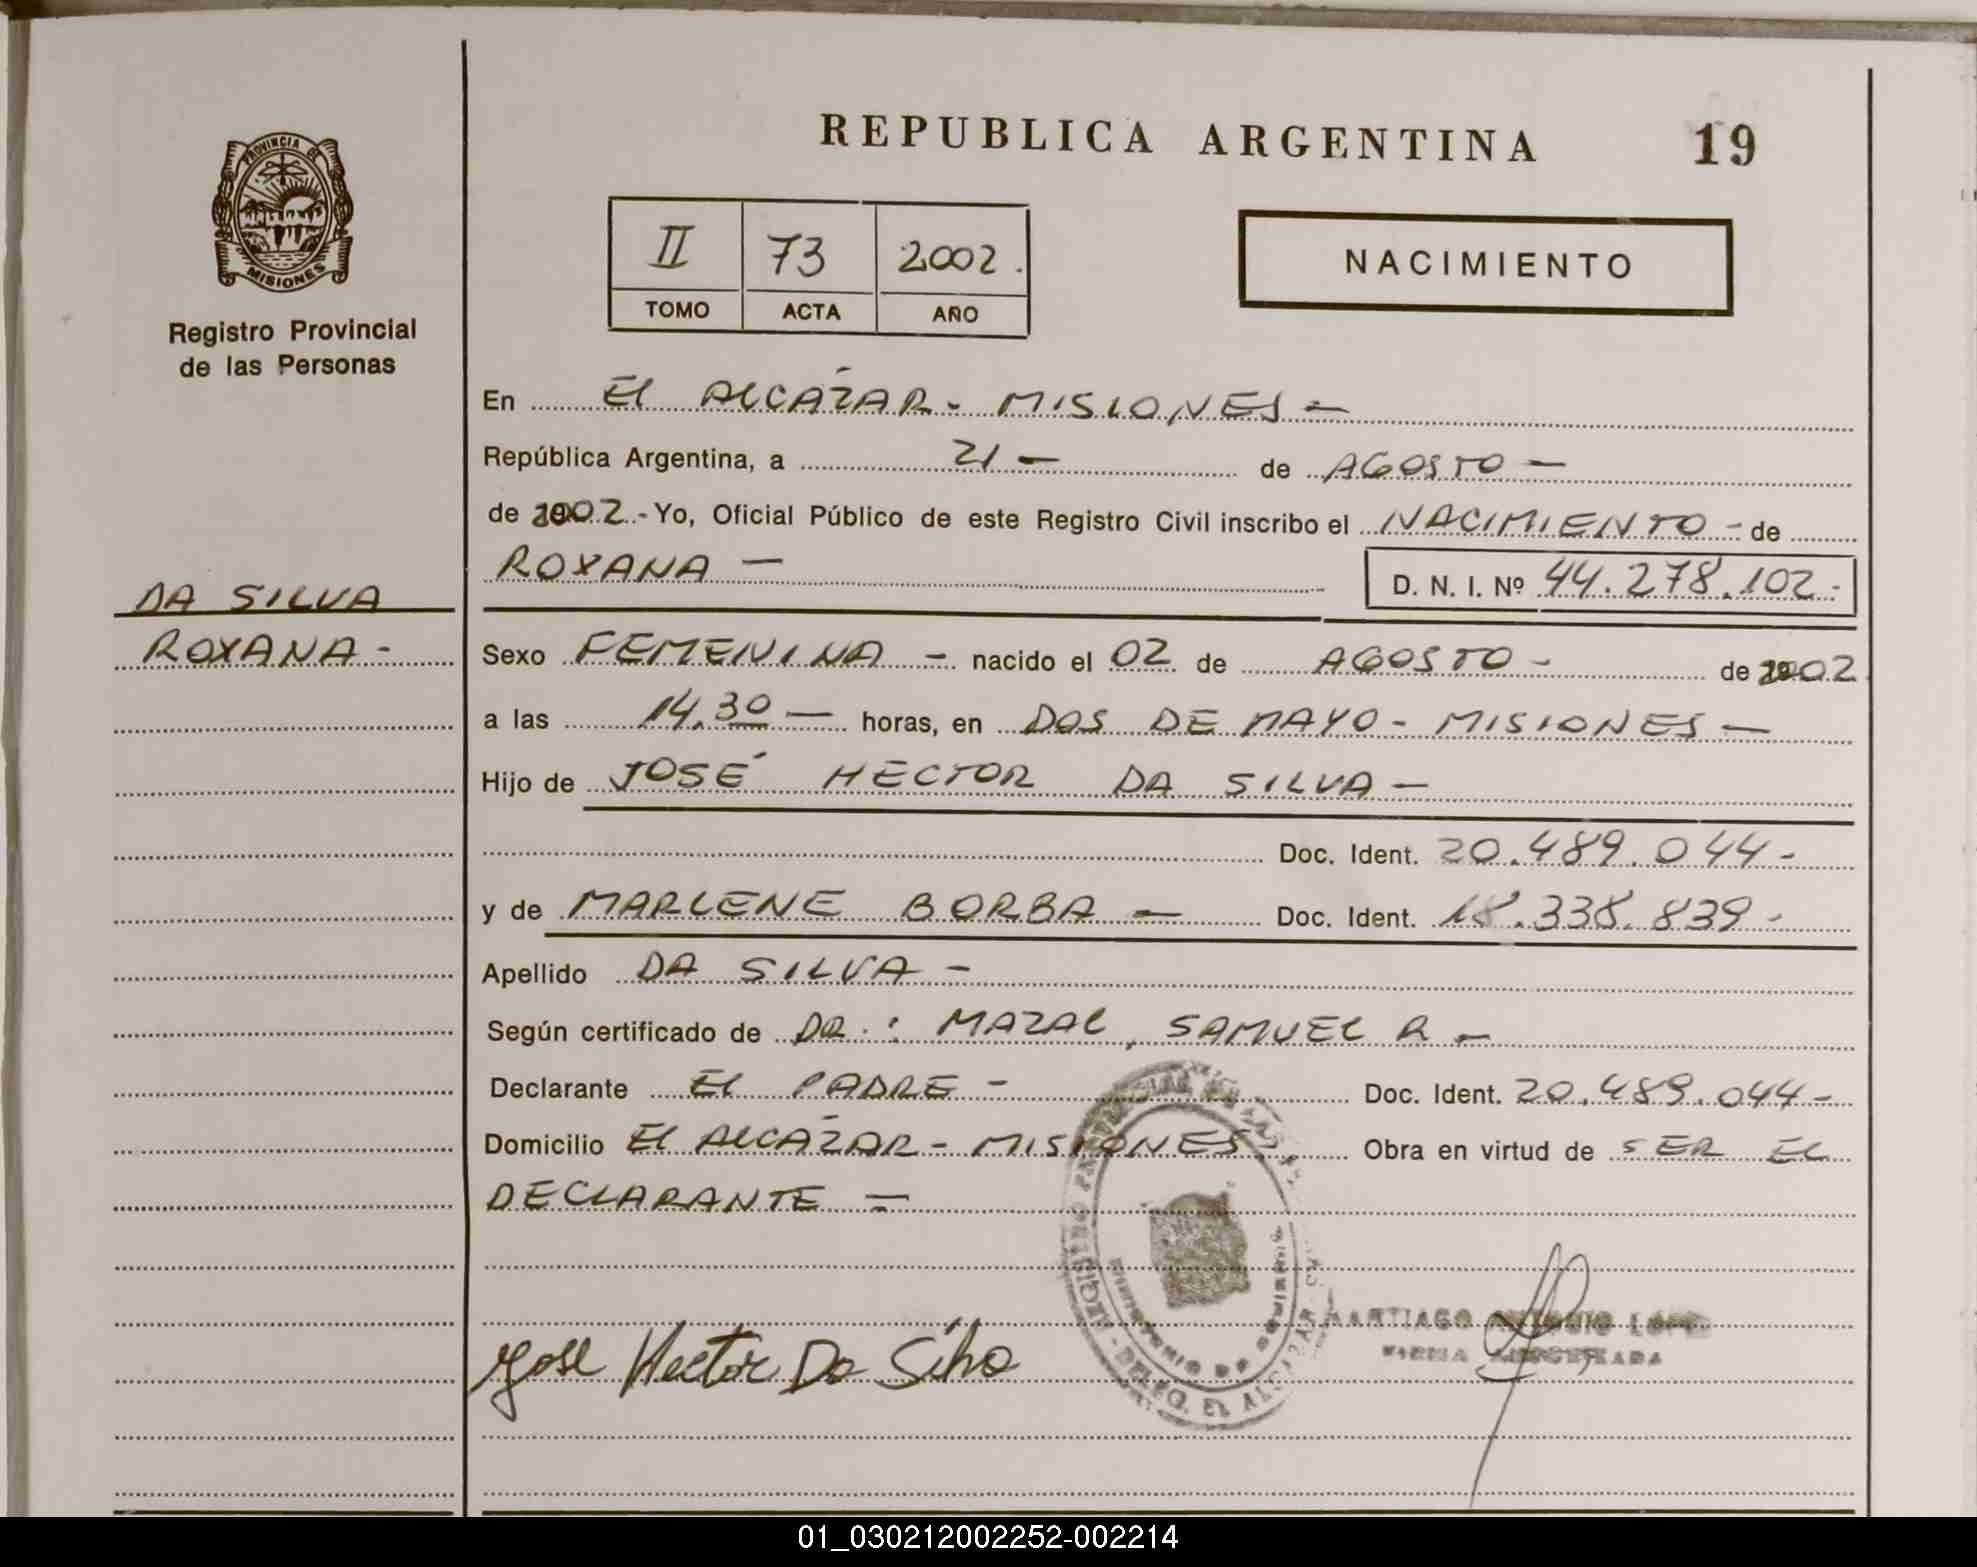 REPUBLICA ARGENTINA 19
PROVINCIA DE
MISIONES
Registro Provincial
de las Personas
II 73 2002.
TOMO ACTA AÑO
NACIMIENTO
En El ALCÁZAR - MISIONES -
República Argentina, a 21 - de AGOSTO -
de 2002.- Yo, Oficial Público de este Registro Civil inscribo el NACIMIENTO - de
ROXANA - D. N. I. Nº 44.278.102-
DA SILVA
ROXANA -
Sexo FEMENINA - nacido el 02 de AGOSTO - de 2002
a las 14.30 - horas, en DOS DE MAYO - MISIONES -
Hijo de JOSÉ HECTOR DA SILVA -
Doc. Ident. 20.489.044-
y de MARLENE BORBA - Doc. Ident. 18.338.839-
Apellido DA SILVA -
Según certificado de DR.: MAZAL, SAMUEL R -
Declarante El PADRE - Doc. Ident. 20.489.044-
Domicilio El ALCÁZAR - MISIONES. Obra en virtud de SER EL
DECLARANTE -
REGISTRO DELEG. EL ALCAZAR
ANTONIO
Jose Hector Da Silva
01_030212002252-002214